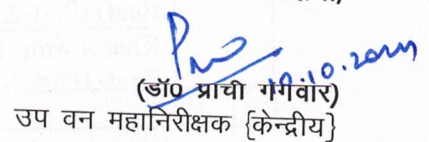 10.10.2024
(डॉ0 प्राची गंगवार)
उप वन महानिरीक्षक {केन्द्रीय}